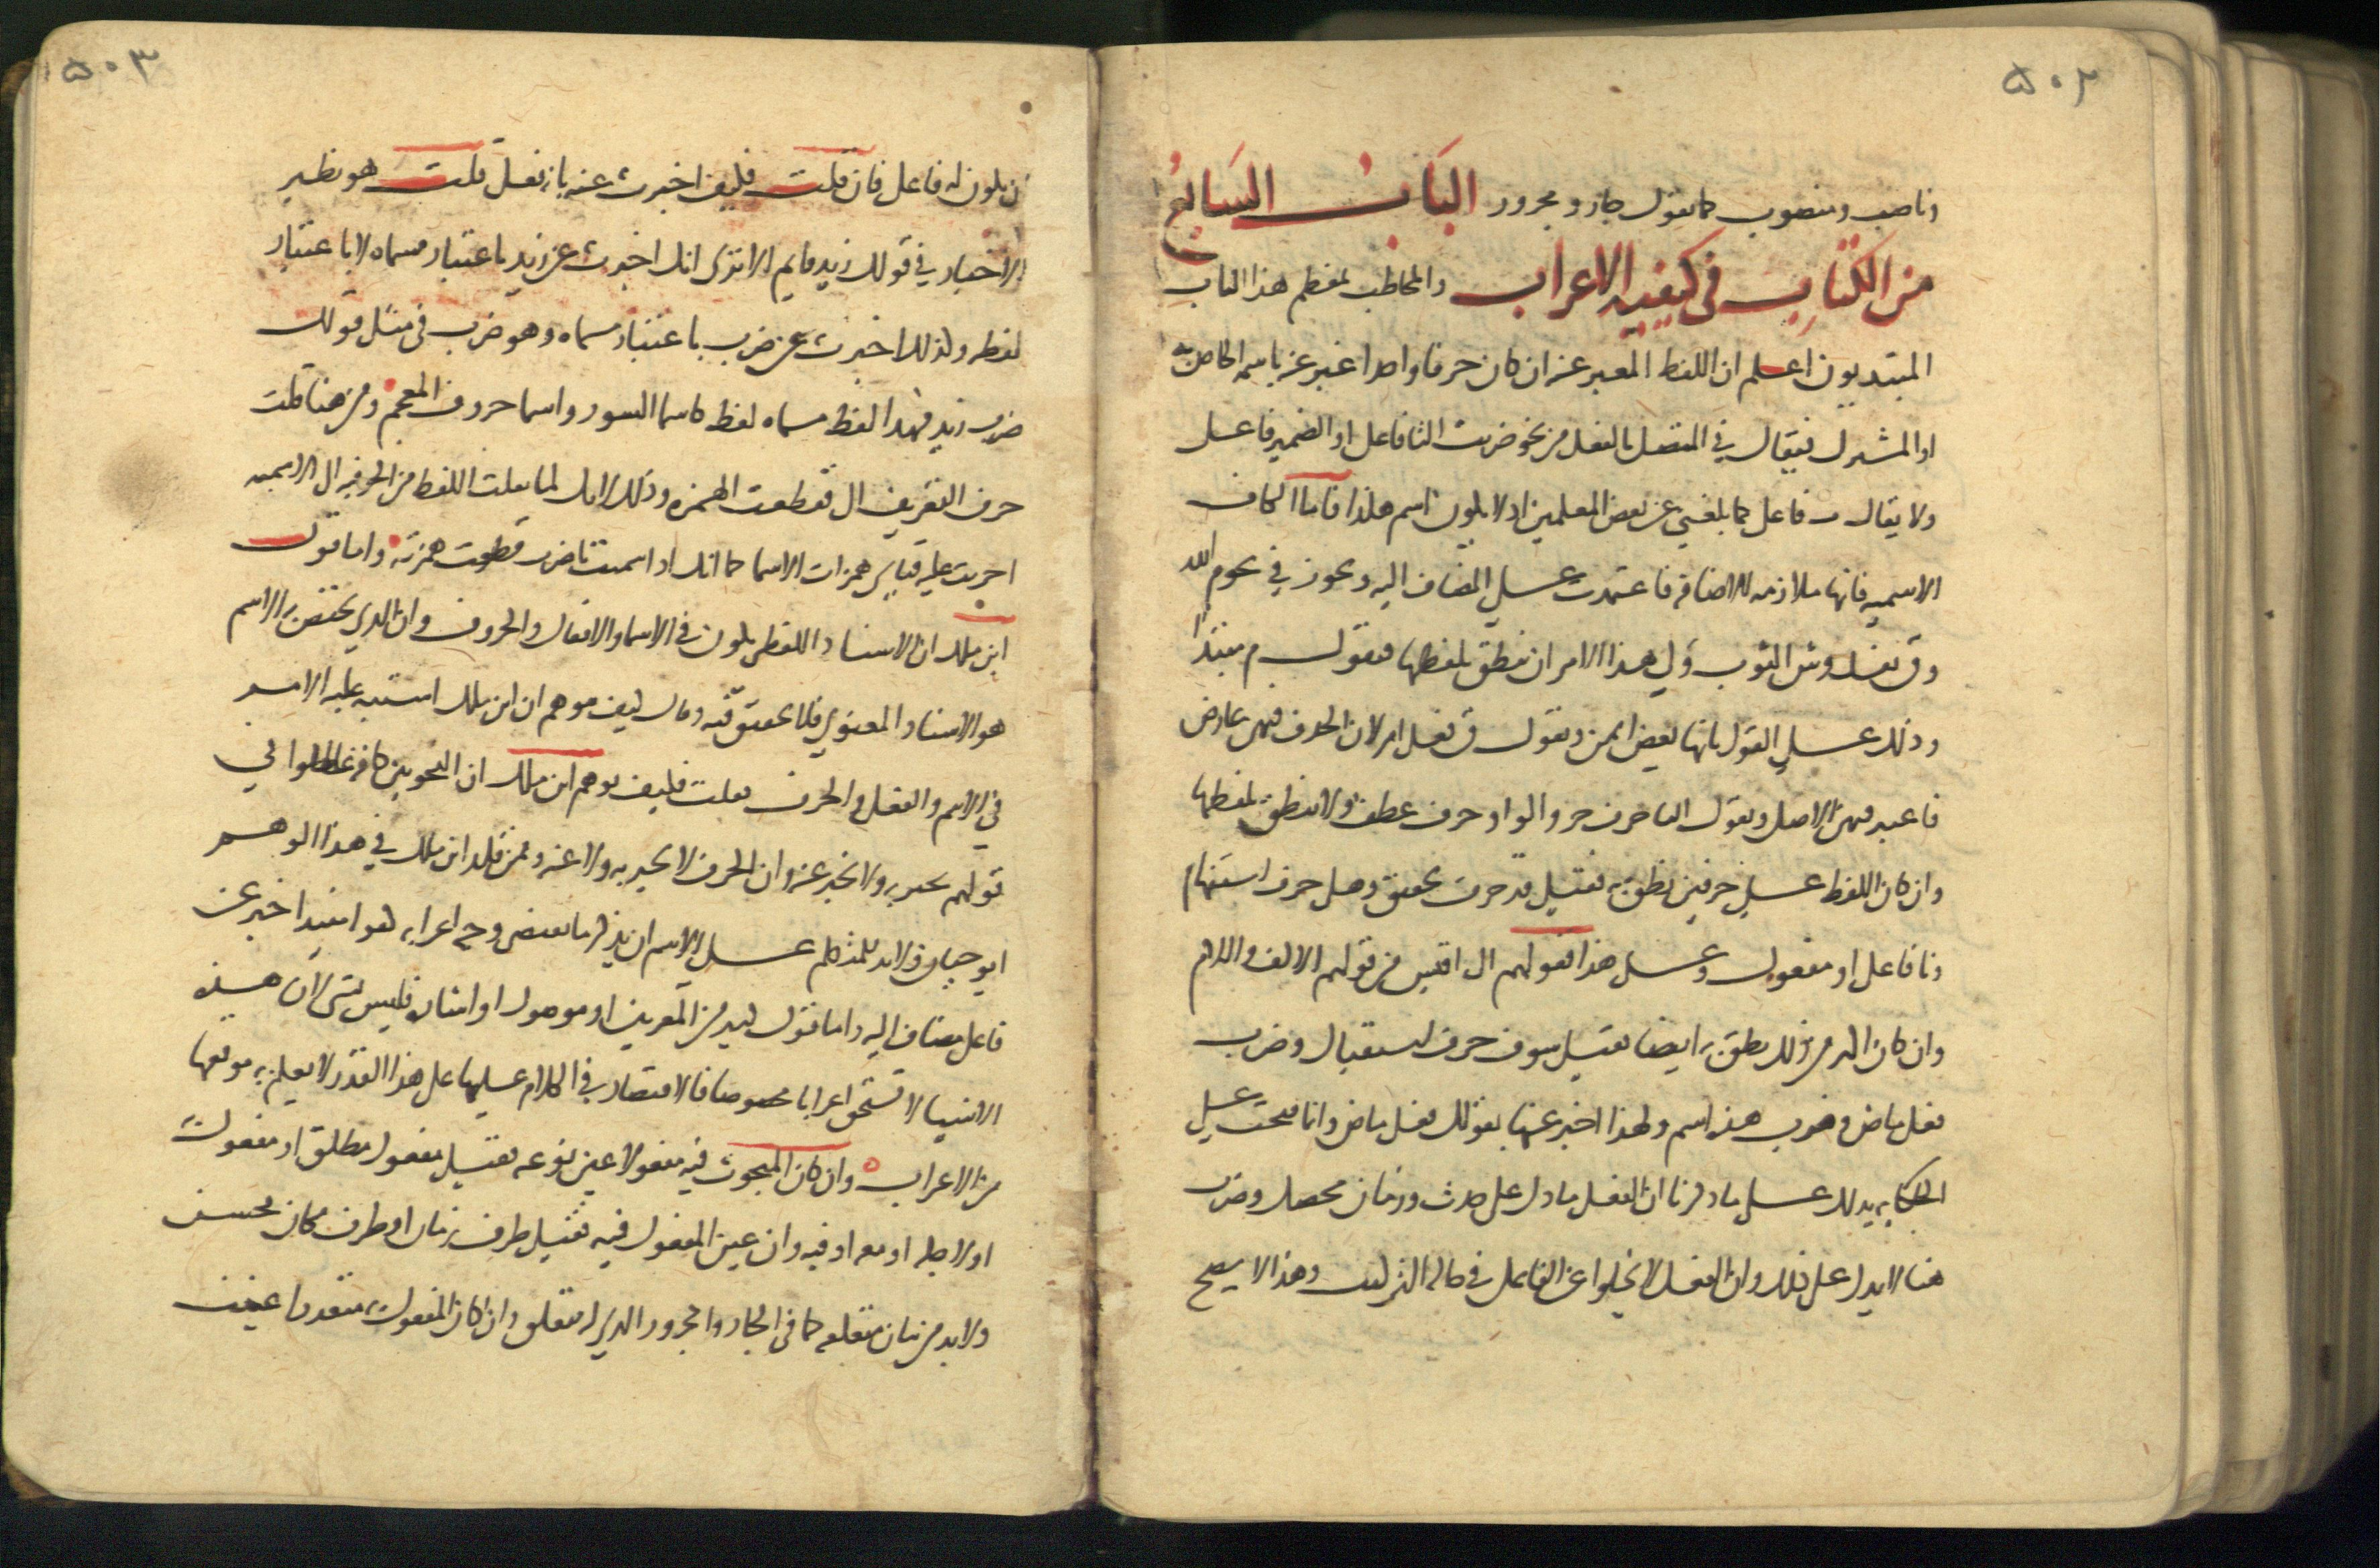 ٥٠٢
وناصب ومنصوب كما تقول جار ومجرور الباب السابع
من الكتاب في كيفية الاعراب والمخاطب بمعظم هذا الباب
المبتديون اعلم ان اللفظ المعبر عنه ان كان حرفا واحدا عبر عنه باسمه الخاص به
او المشترك فيقال في المتصل بالفعل من نحو ضربت التا فاعل او الضمير فاعل
ولا يقال ت فاعل كما بلغني عن بعض المعلمين اذ لا يكون اسم هكذا فاما الكاف
الاسمية فانها ملازمه للاضافة فاعتمدت على المضاف اليه ويجوز في نحو م الله
وق نفسك وش الثوب ول هذا الامر ان تنطق بلفظها فتقول م مبتدا
وذلك على القول بانها بعض ايمن وتقول ق فعل امر لان الحذف فيهن عارض
فاعتبر فيهن الاصل وتقول البا حرف جر والواو حرف عطف ولا تنطق بلفظها
وان كان اللفظ على حرفين نطق به فقيل قد حرف تحقيق وهل حرف استفهام
ونا فاعل او مفعول وعلى هذا فقولهم ال اقيس من قولهم الالف واللام
وان كان اكثر من ذلك نطق به ايضا فقيل سوف حرف استقبال وضرب
فعل ماض وضرب هذه اسم ولهذا اخبر عنها بقولك فعل ماض وانما فتحت على
الحكاية يدلك على ما ذكرنا ان الفعل ما دل على حدث وزمان محصل وضرب
هنا لا يدل على ذلك وان الفعل لا يخلوا عن الفاعل في حالة التركيب وهذا لا يصح
٥٠٣
ان يكون له فاعل فان قلت فكيف اخبرت عنه بانه فعل قلت هو نظير
الاخبار في قولك زيد قايم الا ترى انك اخبرت عن زيد باعتبار مسماه لا باعتبار
لفظه وكذلك اخبرت عن ضرب باعتبار مسماه وهو ضرب في مثل قولك
ضرب زيد فهذا لفظ مسماه لفظ كاسما السور واسما حروف المعجم ومن هنا قلت
حرف التعريف ال فقطعت الهمزه وذلك لانك لما نقلت اللفظ من الحرفيه الى الاسميه
اجريت عليه قياس همزات الاسما كما انك اذا سميت باضرب قطعت همزته واما قول
ابن ملك ان الاسناد اللفظي يكون في الاسما والافعال والحروف وان الذي يختص به الاسم
هو الاسناد المعنوي فلا تحقيق فيه وقال كيف توهم ان ابن ملك اشتبه عليه الامر
في الاسم والفعل والحرف فقلت فكيف توهم ابن ملك ان النحويين كافة غلطوا في
قولهم يخبر به ولا يخبر عنه وان الحرف لا يخبر به ولا عنه وممن قلد ابن ملك في هذا الوهم
ابو حيان ولا بد للمتكلم على الاسم ان يذكر ما يقتضي وجه اعرابه كقوله مبتدا خبر عن
فاعل مضاف اليه واما قول كثير من المعربين او موصول او اشاره فليس بشي لان هذه
الاشيا لا تستحق اعرابا مخصوصا فالاقتصار في الكلام عليها على هذا القدر لا يعلم به موقعها
من الاعراب وان كان المبحوث فيه مفعولا عين نوعه فقيل مفعول مطلق او مفعول به
او لاجله او معه او فيه وان عين المفعول فيه فقيل ظرف زمان او ظرف مكان فحسن
ولا بد من بيان متعلقه كما في الجار والمجرور الذي له متعلق وان كان المفعول به متعددا عينت